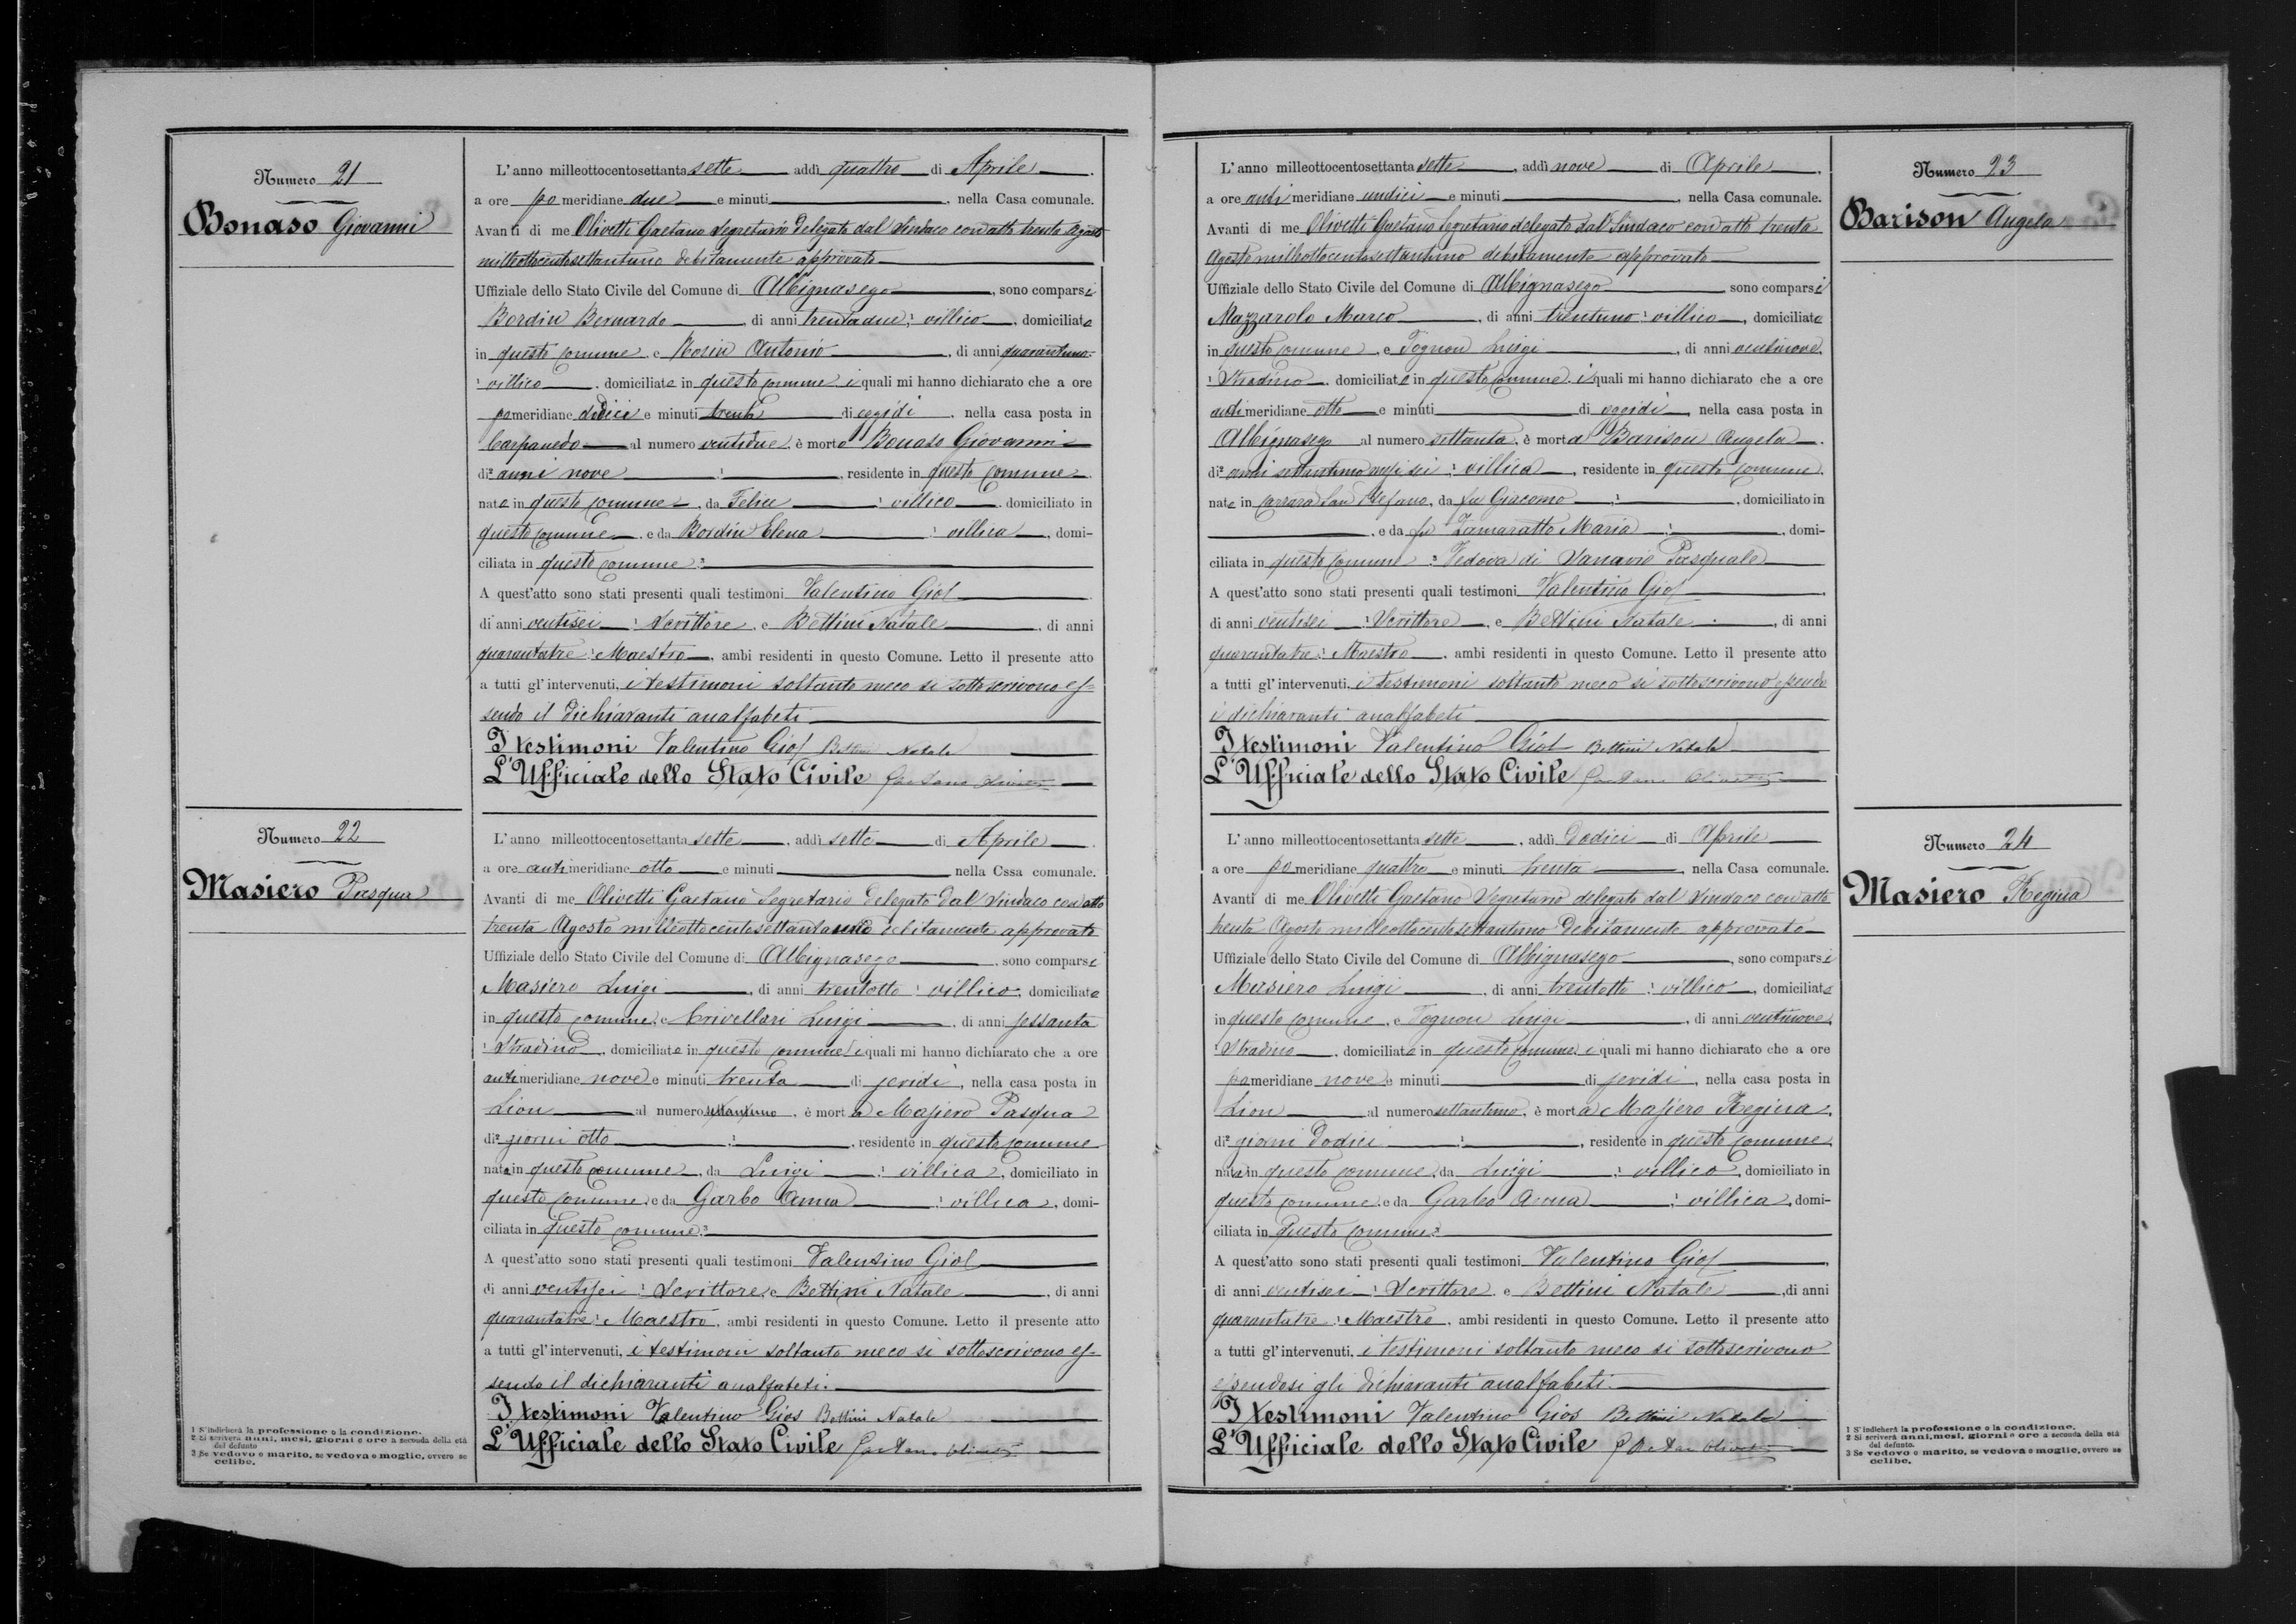 Numero 21
Bonaso Giovanni
L'anno milleottocentosettanta sette addì quattro di Aprile
a ore pomeridiane due e minuti , nella Casa comunale.
Avanti di me Olivetti Gaetano Segretario delegato dal Sindaco con atto trenta Agosto
milleottocentosettantuno debitamente approvato
Uffiziale dello Stato Civile del Comune di Albignasego , sono comparsi
Bordin Bernardo di anni trentadue; villico , domiciliato
in questo comune, e Rosin Antonio , di anni quarantuno
villico , domiciliato in questo comune i quali mi hanno dichiarato che a ore
pomeridiane dodici e minuti trenta di oggidì , nella casa posta in
Carpanedo al numero ventidue, è morto Bonaso Giovanni
di² anni nove , residente in questo comune
nato in questo comune , da Felice villico domiciliato in
questo comune , e da Bordin Elena villica , domi-
ciliata in questo comune ³
A quest'atto sono stati presenti quali testimoni Valentino Giol
di anni ventisei Scrittore, e Bettini Natale , di anni
quarantatre Maestro , ambi residenti in questo Comune. Letto il presente atto
a tutti gl'intervenuti, i testimoni soltanto meco si sottoscrivono es-
sendo il dichiaranti analfabeti
I testimoni Valentino Giol Bettini Natale
L'Ufficiale dello Stato Civile Gaetano Olivetti
Numero 22
Masiero Pasqua
L'anno milleottocentosettanta sette , addì sette di Aprile
a ore antimeridiane otto e minuti nella Cssa comunale.
Avanti di me Olivetti Gaetano Segretario delegato dal Sindaco con atto
trenta Agosto milleottocentosettantauno debitamente approvato
Uffiziale dello Stato Civile del Comune di Albignasego , sono comparsi
Masiero Luigi , di anni trentotto villico, domiciliato
in questo comune, e Crivellari Luigi , di anni sessanta
Stradino , domiciliato in questo comune i quali mi hanno dichiarato che a ore
antimeridiane nove e minuti trenta di jeridì , nella casa posta in
Lion al numero settantuno , è morta Masiero Pasqua
di² giorni otto , residente in questo comune
nata in questo comune , da Luigi villica, domiciliato in
questo comune, e da Garbo Anna villica, domi-
ciliata in questo comune ³
A quest'atto sono stati presenti quali testimoni Valentino Giol
di anni ventisei Scrittore, e Bettini Natale , di anni
quarantatre Maestro , ambi residenti in questo Comune. Letto il presente atto
a tutti gl'intervenuti, i testimoni soltanto meco si sottoscrivono es-
sendo il dichiaranti analfabeti.
I testimoni Valentino Giol Bettini Natale
L'Ufficiale dello Stato Civile Gaetano Olivetti
1 S'indicherà la professione o la condizione.
2 Si scriverà anni, mesi, giorni e ore a seconda della età
del defunto
3 Se vedovo o marito, se vedova o moglie, ovvero se
celibe.
Numero 23
Barison Angela
L'anno milleottocentosettanta sette , addì nove di Aprile
a ore antimeridiane undici e minuti , nella Casa comunale.
Avanti di me Olivetti Gaetano Segretario delegato dal Sindaco con atto trenta
Agosto milleottocentosettantuno debitamente approvato
Uffiziale dello Stato Civile del Comune di Albignasego sono comparsi
Mazzarolo Marco , di anni trentuno villico , domiciliato
in questo comune , e Tognon Luigi , di anni ventinove
Stradino , domiciliato in questo comune i quali mi hanno dichiarato che a ore
antimeridiane otto e minuti di oggidì , nella casa posta in
Albignasego al numero settanta, è morta Barison Angela
di² anni settantuno mesi sei villica , residente in questo comune
nata in Carrara San Stefano, da fu Giacomo , domiciliato in
, e da fu Zamaratto Maria , domi-
ciliata in questo comune ³ Vedova di Vanavio Pasquale
A quest'atto sono stati presenti quali testimoni Valentino Giol
di anni ventisei Scrittore , e Bettini Natale , di anni
quarantatre Maestro , ambi residenti in questo Comune. Letto il presente atto
a tutti gl'intervenuti, i testimoni soltanto meco si sottoscrivono essendo
i dichiaranti analfabeti
I testimoni Valentino Giol Bettini Natale
L'Ufficiale dello Stato Civile Gaetano Olivetti
Numero 24
Masiero Regina
L'anno milleottocentosettanta sette , addì dodici di Aprile
a ore pomeridiane quattro e minuti trenta , nella Casa comunale.
Avanti di me Olivetti Gaetano Segretario delegato dal Sindaco con atto
trenta Agosto milleottocentosettantuno debitamente approvato
Uffiziale dello Stato Civile del Comune di Albignasego , sono comparsi
Masiero Luigi , di anni trentotto villico , domiciliato
in questo comune , e Tognon Luigi , di anni ventinove
Stradino , domiciliato in questo comune i quali mi hanno dichiarato che a ore
pomeridiane nove e minuti di jeridì , nella casa posta in
Lion al numero settantuno, è morta Masiero Regina
di² giorni dodici , residente in questo comune
nata in questo comune, da Luigi villico, domiciliato in
questo comune, e da Garbo Anna villica, domi-
ciliata in questo comune ³
A quest'atto sono stati presenti quali testimoni Valentino Giol
di anni ventisei Scrittore e Bettini Natale , di anni
quarantatre Maestro , ambi residenti in questo Comune. Letto il presente atto
a tutti gl'intervenuti, i testimoni soltanto meco si sottoscrivono
essendosi gli dichiaranti analfabeti.
I testimoni Valentino Giol Bettini Natale
L'Ufficiale dello Stato Civile Gaetano Olivetti
1 S'indicherà la professione o la condizione.
2 Si scriverà anni, mesi, giorni e ore a seconda della età
del defunto.
3 Se vedovo o marito, se vedova o moglie, ovvero se
celibe.